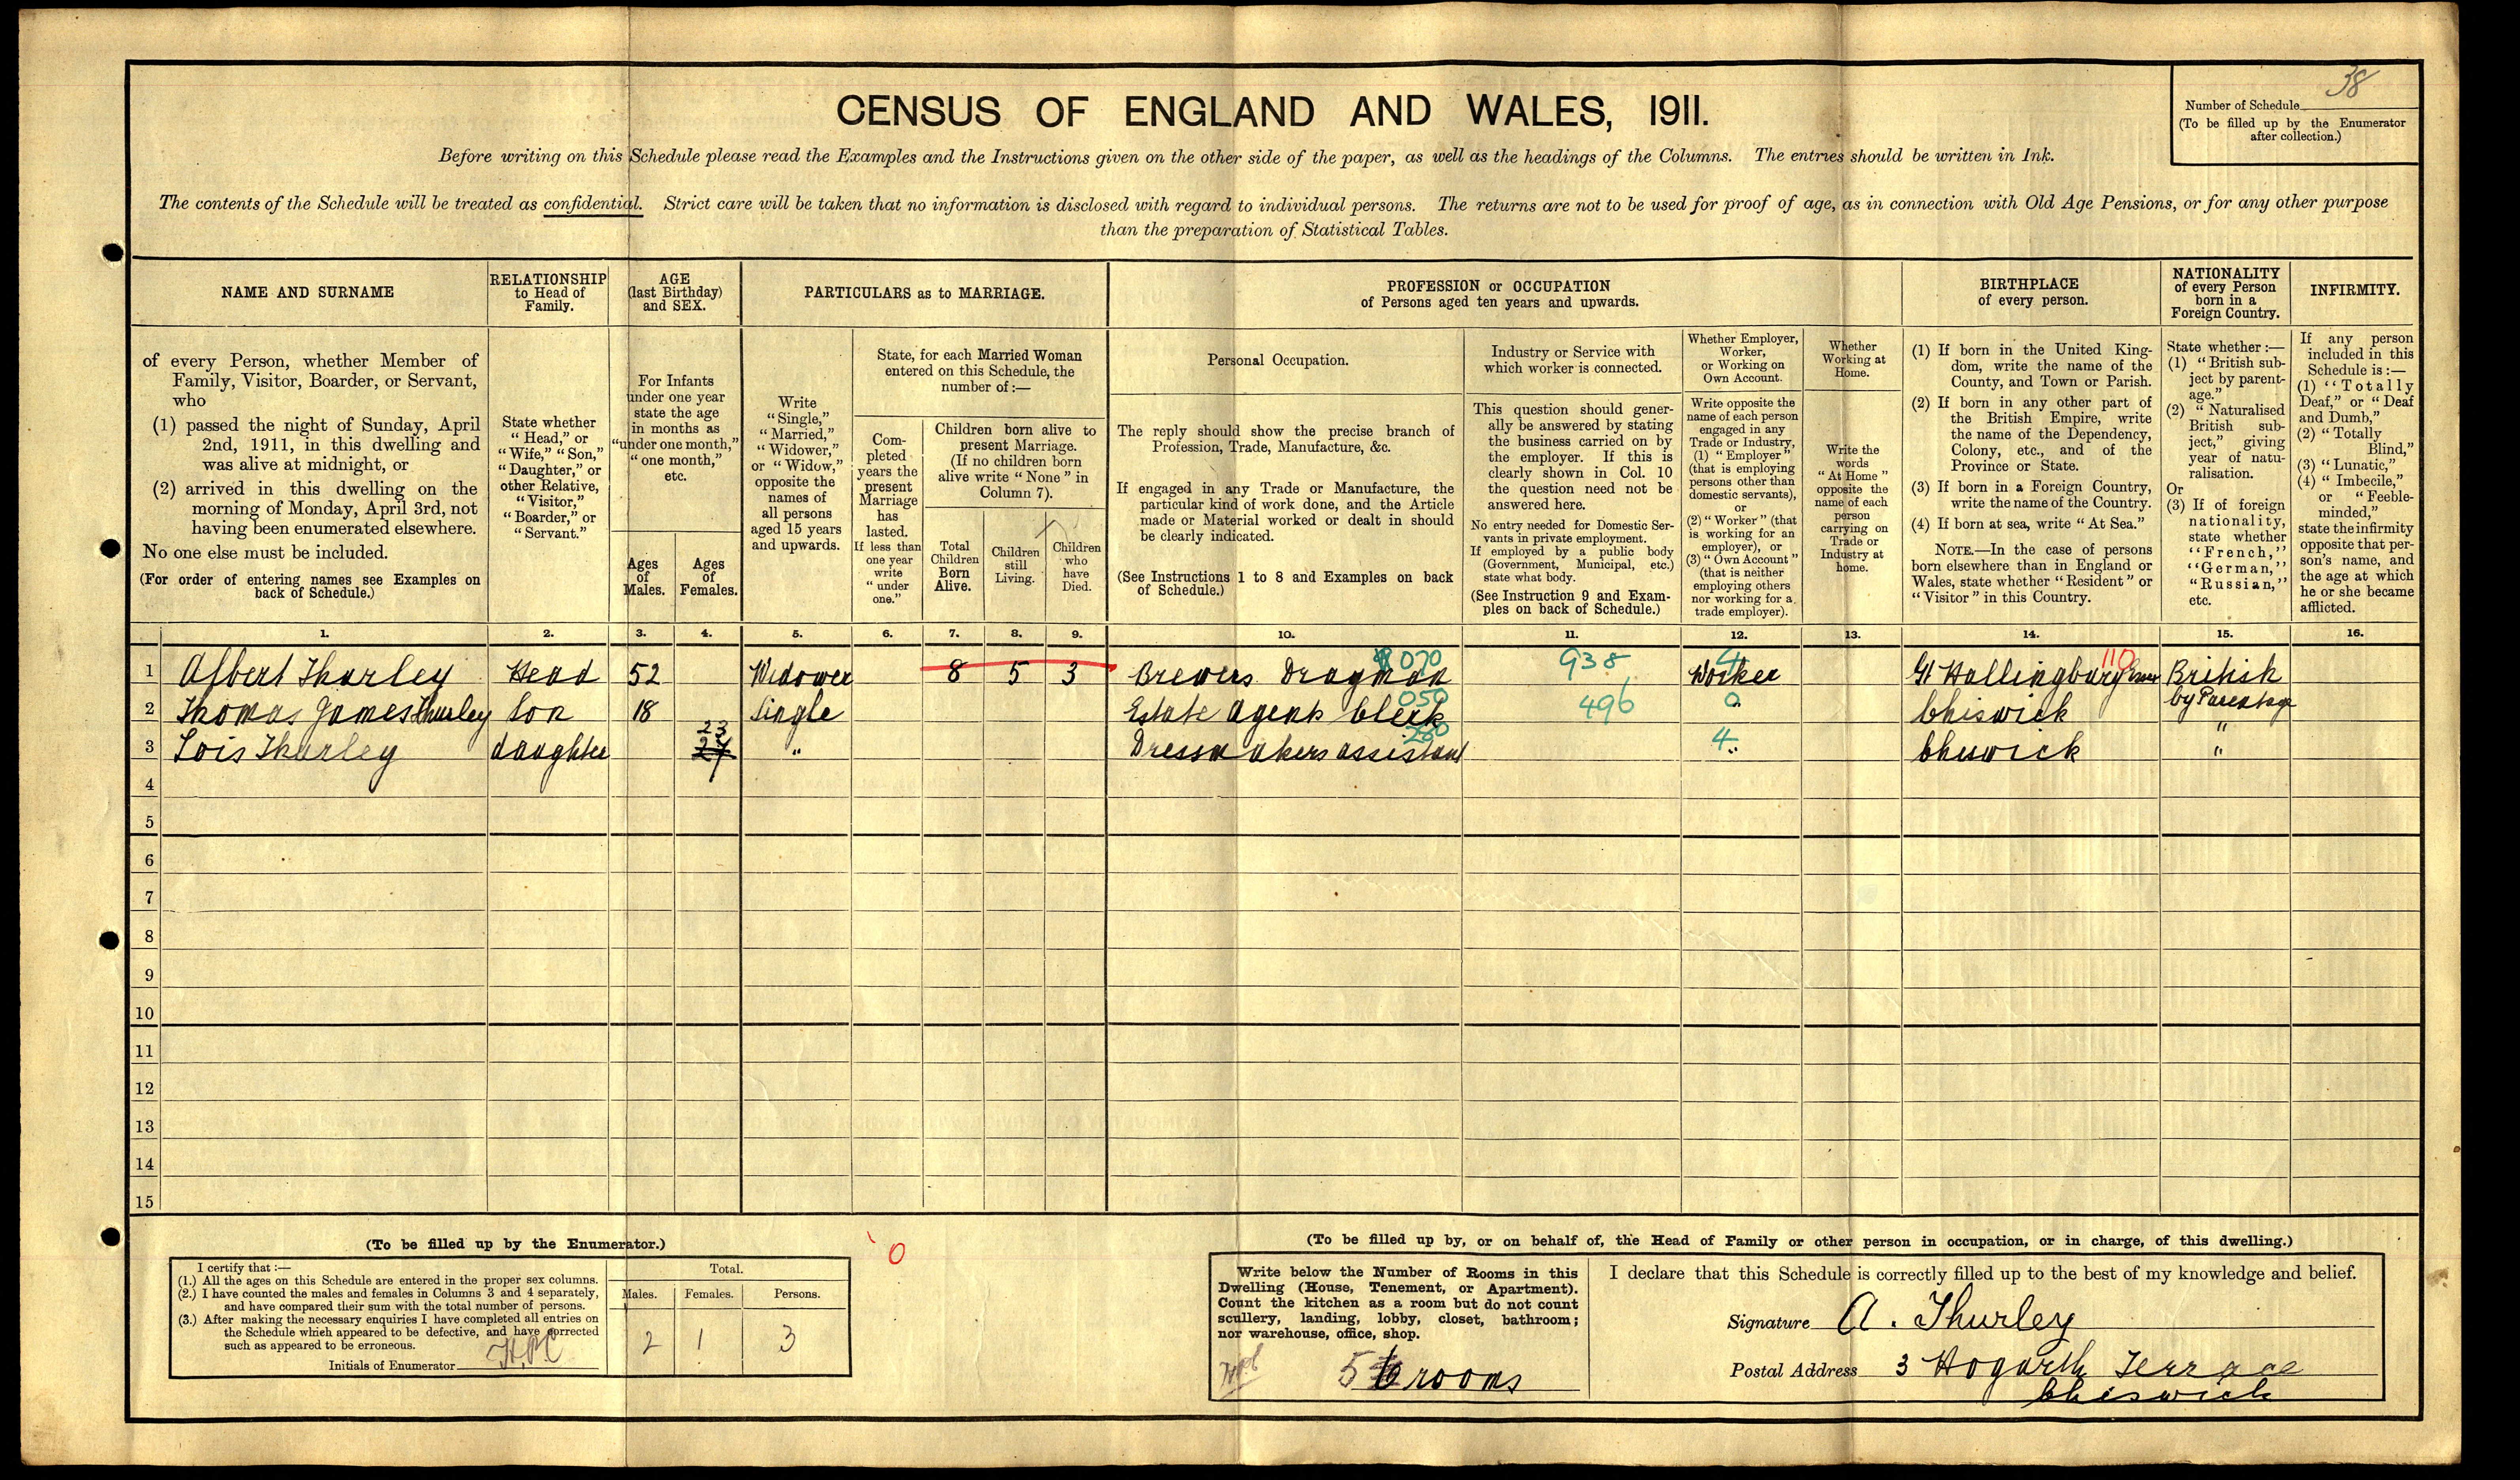 38
Number of Schedule
(To be filled up by the Enumerator
after collection.)
CENSUS OF ENGLAND AND WALES, 1911.
Before writing on this Schedule please read the Examples and the Instructions given on the other side of the paper, as well as the headings of the Columns. The entries should be written in Ink.
The contents of the Schedule will be treated as confidential. Strict care will be taken that no information is disclosed with regard to individual persons. The returns are not to be used for proof of age, as in connection with Old Age Pensions, or for any other purpose
than the preparation of Statistical Tables.
NAME AND SURNAME
of every Person, whether Member of
Family, Visitor, Boarder, or Servant,
who
(1) passed the night of Sunday, April
2nd, 1911, in this dwelling and
was alive at midnight, or
(2) arrived in this dwelling on the
morning of Monday, April 3rd, not
having been enumerated elsewhere.
No one else must be included.
(For order of entering names see Examples on
back of Schedule.)
RELATIONSHIP
to Head of
Family.
State whether
"Head," or
"Wife," "Son,"
"Daughter," or
other Relative,
"Visitor,"
"Boarder," or
"Servant."
AGE
(last Birthday)
and SEX.
For Infants
under one year
state the age
in months as
"under one month,"
"one month,"
etc.
Ages
of
Males.
Ages
of
Females.
PARTICULARS as to MARRIAGE.
Write
"Single,"
"Married,"
"Widower,"
or "Widow,"
opposite the
names of
all persons
aged 15 years
and upwards.
State, for each Married Woman
entered on this Schedule, the
number of:—
Com-
pleted
years the
present
Marriage
has
lasted.
If less than
one year
write
"under
one."
Children born alive to
present Marriage.
(If no children born
alive write "None" in
Column 7).
Total
Children
Born
Alive.
Children
still
Living.
Children
who
have
Died.
PROFESSION or OCCUPATION
of Persons aged ten years and upwards.
Personal Occupation.
The reply should show the precise branch of
Profession, Trade, Manufacture, &c.
If engaged in any Trade or Manufacture, the
particular kind of work done, and the Article
made or Material worked or dealt in should
be clearly indicated.
(See Instructions 1 to 8 and Examples on back
of Schedule.)
Industry or Service with
which worker is connected.
This question should gener-
ally be answered by stating
the business carried on by
the employer. If this is
clearly shown in Col. 10
the question need not be
answered here.
No entry needed for Domestic Ser-
vants in private employment.
If employed by a public body
(Government, Municipal, etc.)
state what body.
(See Instruction 9 and Exam-
ples on back of Schedule.)
Whether Employer,
Worker,
or Working on
Own Account.
Write opposite the
name of each person
engaged in any
Trade or Industry,
(1) "Employer"
(that is employing
persons other than
domestic servants),
or
(2) "Worker" (that
is working for an
employer), or
(3) "Own Account"
(that is neither
employing others
nor working for a
trade employer).
Whether
Working at
Home.
Write the
words
"At Home"
opposite the
name of each
person
carrying on
Trade or
Industry at
home.
BIRTHPLACE
of every person.
(1) If born in the United King-
dom, write the name of the
County, and Town or Parish.
(2) If born in any other part of
the British Empire, write
the name of the Dependency,
Colony, etc., and of the
Province or State.
(3) If born in a Foreign Country,
write the name of the Country.
(4) If born at sea, write "At Sea."
NOTE.—In the case of persons
born elsewhere than in England or
Wales, state whether "Resident" or
"Visitor" in this Country.
NATIONALITY
of every Person
born in a
Foreign Country.
State whether:—
(1) "British sub-
ject by parent-
age."
(2) "Naturalised
British sub-
ject," giving
year of natu-
ralisation.
Or
(3) If of foreign
nationality,
state whether
"French,"
"German,"
"Russian,"
etc.
INFIRMITY.
If any person
included in this
Schedule is:—
(1) "Totally
Deaf," or "Deaf
and Dumb,"
(2) "Totally
Blind,"
(3) "Lunatic,"
(4) "Imbecile,"
or "Feeble-
minded,"
state the infirmity
opposite that per-
son's name, and
the age at which
he or she became
afflicted.
1. 2. 3. 4. 5. 6. 7. 8. 9. 10. 11. 12. 13. 14. 15. 16.
070 938 4 110
1 Albert Thurley Head 52 Widower 8 5 3 Brewers Drayman Worker Gt Hallingbury Essex British
050 496 0
2 Thomas James Thurley Son 18 Single Estate Agents Clerk " Chiswick by Parentage
23 280 4 "
3 Lois Thurley daughter 24 " Dressmakers assistant " Chiswick "
4
5
6
7
8
9
10
11
12
13
14
15
(To be filled up by the Enumerator.)
I certify that:—
(1.) All the ages on this Schedule are entered in the proper sex columns.
(2.) I have counted the males and females in Columns 3 and 4 separately,
and have compared their sum with the total number of persons.
(3.) After making the necessary enquiries I have completed all entries on
the Schedule which appeared to be defective, and have corrected
such as appeared to be erroneous.
Initials of Enumerator
Total.
Males. Females. Persons.
2 1 3
0
(To be filled up by, or on behalf of, the Head of Family or other person in occupation, or in charge, of this dwelling.)
Write below the Number of Rooms in this
Dwelling (House, Tenement, or Apartment).
Count the kitchen as a room but do not count
scullery, landing, lobby, closet, bathroom;
nor warehouse, office, shop.
5 6 rooms
I declare that this Schedule is correctly filled up to the best of my knowledge and belief.
Signature A. Thurley
Postal Address 3 Hogarth Terrace
Chiswick